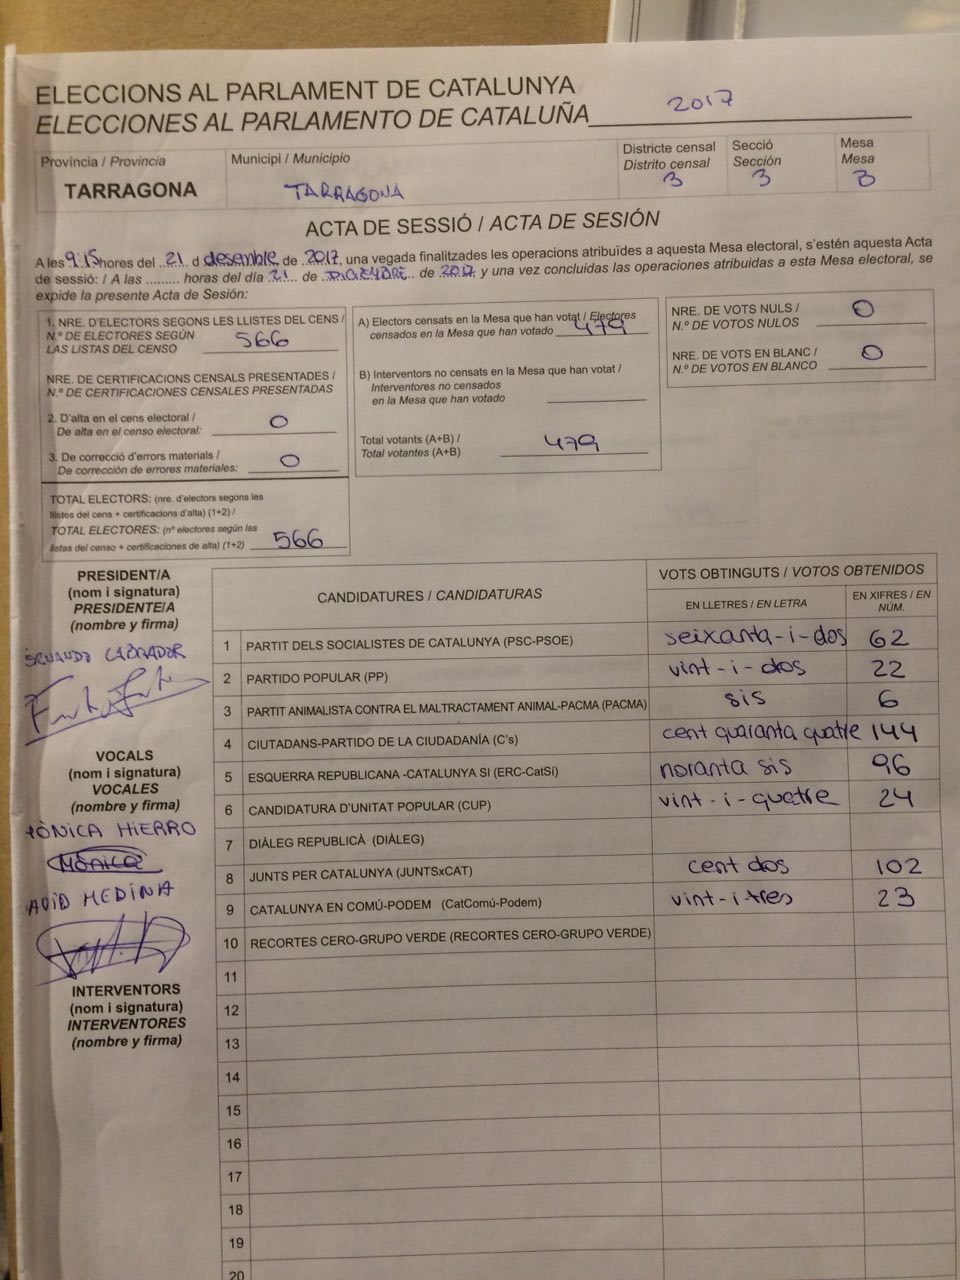 ELECCIONS AL PARLAMENT DE CATALUNYA
ELECCIONES AL PARLAMENTO DE CATALUÑA 2017
Provincia / Provincia
TARRAGONA
Municipi / Municipio
TARRAGONA
Districte censal
Distrito censal
3
Secció
Sección
3
Mesa
Mesa
B
ACTA DE SESSIÓ / ACTA DE SESIÓN
A les 9:15 hores del 21 d desembre de 2017, una vegada finalitzades les operacions atribuïdes a aquesta Mesa electoral, s'estén aquesta Acta
de sessió: / A las ......... horas del día 21 de DICIEMBRE de 2017 y una vez concluidas las operaciones atribuidas a esta Mesa electoral, se
expide la presente Acta de Sesión:
1. NRE. D'ELECTORS SEGONS LES LLISTES DEL CENS /
N.º DE ELECTORES SEGÚN
LAS LISTAS DEL CENSO 566
NRE. DE CERTIFICACIONS CENSALS PRESENTADES /
N.º DE CERTIFICACIONES CENSALES PRESENTADAS
2. D'alta en el cens electoral /
De alta en el censo electoral: 0
3. De correcció d'errors materials /
De corrección de errores materiales: 0
TOTAL ELECTORS: (nre. d'electors segons les
llistes del cens + certificacions d'alta) (1+2) /
TOTAL ELECTORES: (nº electores según las
listas del censo + certificaciones de alta) (1+2) 566
A) Electors censats en la Mesa que han votat / Electores
censados en la Mesa que han votado 479
B) Interventors no censats en la Mesa que han votat /
Interventores no censados
en la Mesa que han votado
Total votants (A+B) /
Total votantes (A+B) 479
NRE. DE VOTS NULS /
N.º DE VOTOS NULOS 0
NRE. DE VOTS EN BLANC /
N.º DE VOTOS EN BLANCO 0
PRESIDENT/A
(nom i signatura)
PRESIDENTE/A
(nombre y firma)
LABRADOR
VOCALS
(nom i signatura)
VOCALES
(nombre y firma)
MÒNICA HIERRO
Mònica
AVID MEDINA
INTERVENTORS
(nom i signatura)
INTERVENTORES
(nombre y firma)
CANDIDATURES / CANDIDATURAS
VOTS OBTINGUTS / VOTOS OBTENIDOS
EN LLETRES / EN LETRA
EN XIFRES / EN NÚM.
1 PARTIT DELS SOCIALISTES DE CATALUNYA (PSC-PSOE) seixanta-i-dos 62
2 PARTIDO POPULAR (PP) vint-i-dos 22
3 PARTIT ANIMALISTA CONTRA EL MALTRACTAMENT ANIMAL-PACMA (PACMA) sis 6
4 CIUTADANS-PARTIDO DE LA CIUDADANÍA (C's) cent quaranta quatre 144
5 ESQUERRA REPUBLICANA -CATALUNYA SI (ERC-CatSí) noranta sis 96
6 CANDIDATURA D'UNITAT POPULAR (CUP) vint-i-quatre 24
7 DIÀLEG REPUBLICÀ (DIÀLEG)
8 JUNTS PER CATALUNYA (JUNTSxCAT) cent dos 102
9 CATALUNYA EN COMÚ-PODEM (CatComú-Podem) vint-i-tres 23
10 RECORTES CERO-GRUPO VERDE (RECORTES CERO-GRUPO VERDE)
11
12
13
14
15
16
17
18
19
20